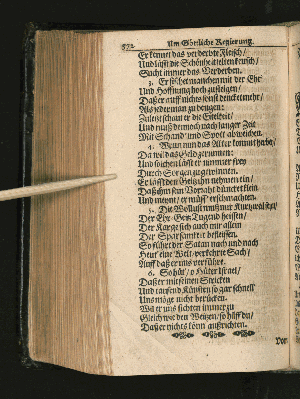 572 Um Göttliche Regierung.
Er kennet das verderbte Fleisch/
Und läst die Schönheit selten keusch/
Sucht immer das Verderben.
3. Er sicht manchen mit der Ehr
Und Hoffnung hoch zusteigen/
Daß er auff nichts sonst dencket mehr/
Als jederman zu beugen:
Zuletzt schaut er die Eitelkeit/
Und muß dennoch nach langer Zeit
Mit Schand und Spott abweichen.
4. Wenn nun das Alter kommt herbey/
Da wil das Geld
Und solchen läst er nimmer frey
Durch Sorgen zu gewinnen.
Er läst den Geitz ihn nehmen ein/
Daß ihm sein Vorraht düncket klein
Und meynt/ er müß verschmachten.
5. Die Wollust muß nur Kurtzweil seyn/
Der Ehr-Geitz Tugend heissen/
Der Karge sich auch nur allein
Der Sparsamkeit befleissen.
So führt der Satan nach und nach
Heur eine Welt/ verkehrte Sach/
Auff daß er uns verführe.
6. So hüt/ o Hüter Israel/
Daß er mit seinen Stricken
Und tausend Künsten so gar schnell
Uns möge nicht berücken.
Wil er uns sichten immer zu
Gleich wie den Weitzen/ so hilff du/
Daß er nichts könn außrichten.
Vor